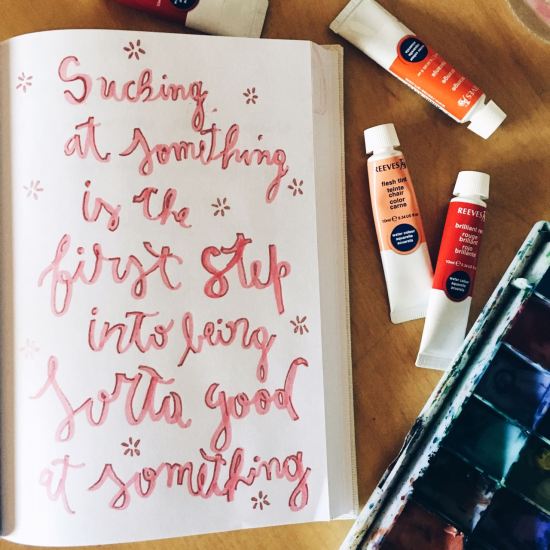 Sucking
at something
is the
first step
into being
sorta good
at something
REEVES
flesh tint
teinte
chair
color
carne
10ml
water colour
aquarelle
acuarela
REEVES
brilliant red
rouge
brillant
rojo
brillante
10ml
water colour
aquarelle
acuarela
REEVES